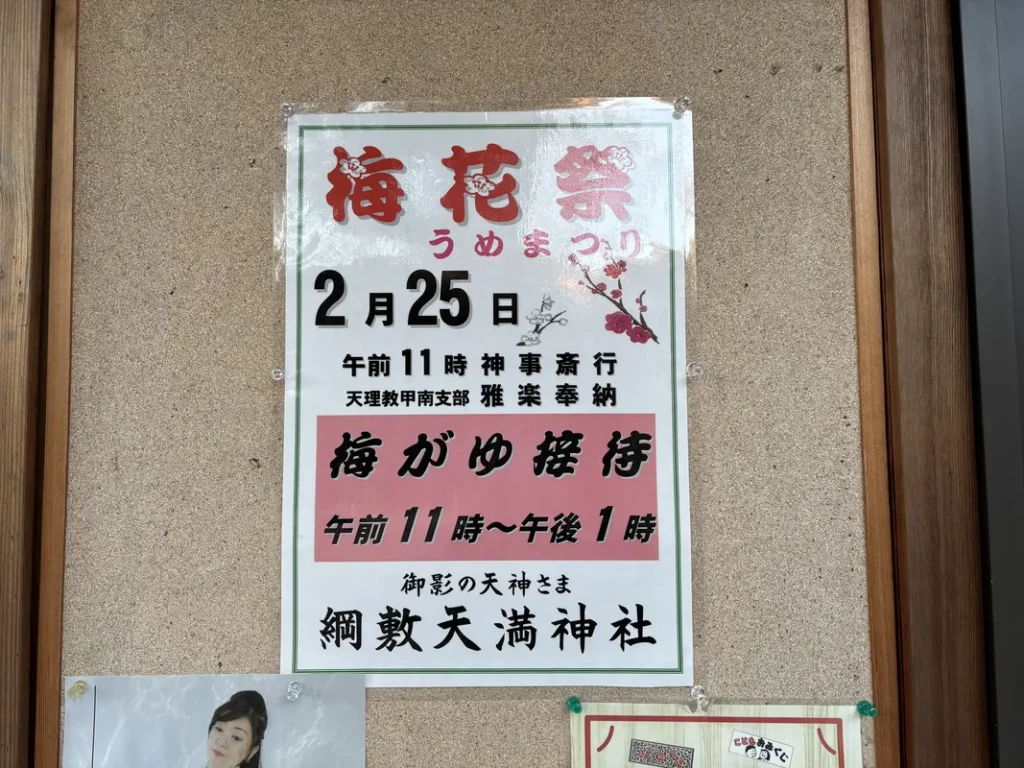 梅花祭
うめまつり
2月25日
午前11時神事斎行
天理教甲南支部 雅楽奉納
梅がゆ接待
午前11時〜午後1時
御影の天神さま
綱敷天満神社
こどもおみくじ